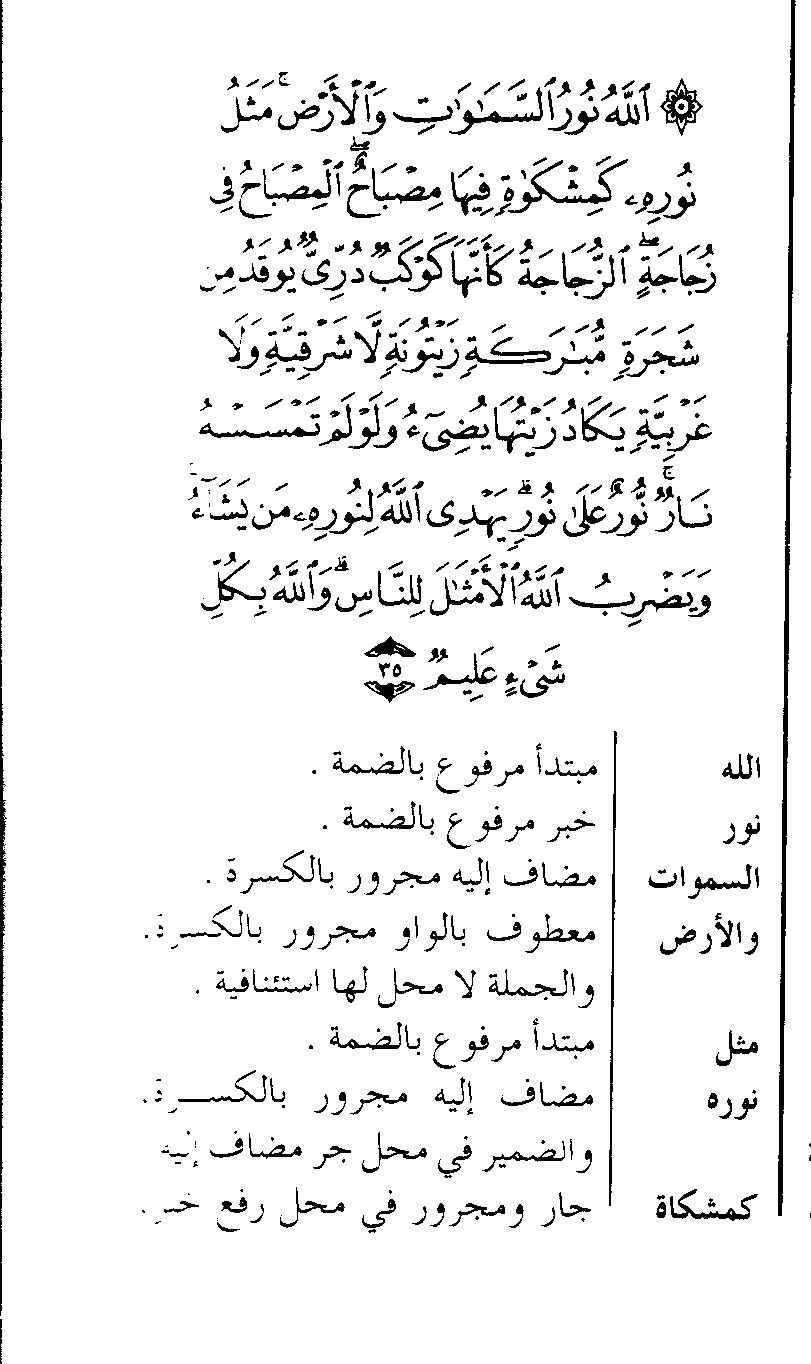 ۞ ٱللَّهُ نُورُ ٱلسَّمَٰوَٰتِ وَٱلْأَرْضِ ۚ مَثَلُ
نُورِهِۦ كَمِشْكَوٰةٍ فِيهَا مِصْبَاحٌ ۖ ٱلْمِصْبَاحُ فِى
زُجَاجَةٍ ۖ ٱلزُّجَاجَةُ كَأَنَّهَا كَوْكَبٌ دُرِّىٌّ يُوقَدُ مِن
شَجَرَةٍ مُّبَٰرَكَةٍ زَيْتُونَةٍ لَّا شَرْقِيَّةٍ وَلَا
غَرْبِيَّةٍ يَكَادُ زَيْتُهَا يُضِىٓءُ وَلَوْ لَمْ تَمْسَسْهُ
نَارٌ ۚ نُّورٌ عَلَىٰ نُورٍ ۗ يَهْدِى ٱللَّهُ لِنُورِهِۦ مَن يَشَآءُ ۚ
وَيَضْرِبُ ٱللَّهُ ٱلْأَمْثَٰلَ لِلنَّاسِ ۗ وَٱللَّهُ بِكُلِّ
شَىْءٍ عَلِيمٌ ٣٥
الله مبتدأ مرفوع بالضمة .
نور خبر مرفوع بالضمة .
السموات مضاف إليه مجرور بالكسرة .
والأرض معطوف بالواو مجرور بالكسرة.
والجملة لا محل لها استئنافية .
مثل مبتدأ مرفوع بالضمة .
نوره مضاف إليه مجرور بالكسـرة.
والضمير في محل جر مضاف إليه
كمشكاة جار ومجرور في محل رفع خبر.